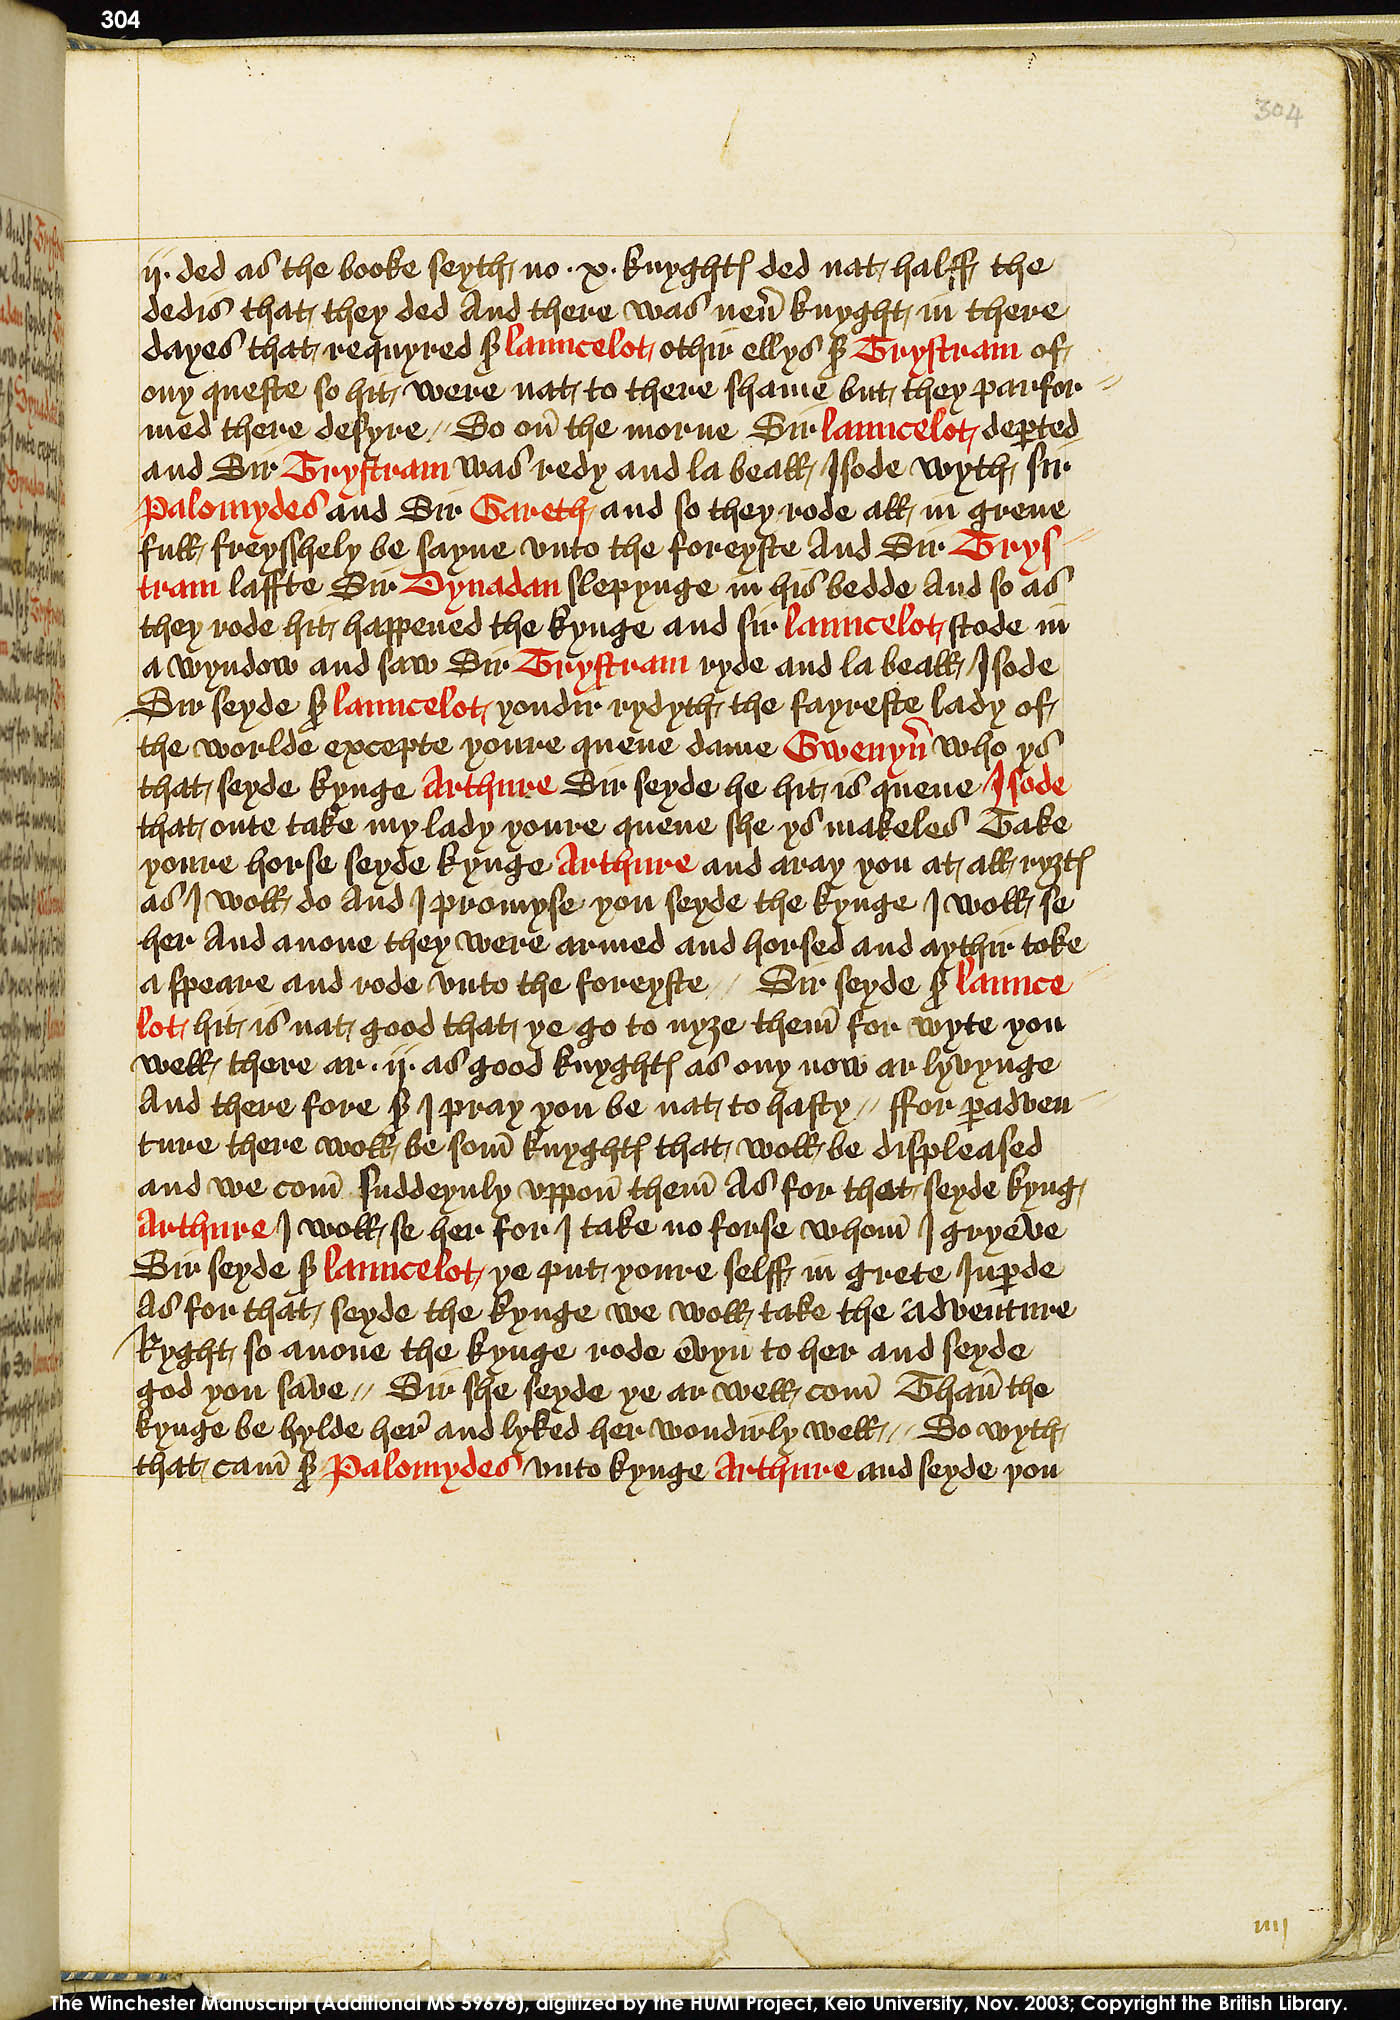 304
304
ij · ded as the booke seyth no · x · knyghtꝭ ded nat halff the
dedis that they ded And there was neũ knyght in there
dayes that requyred sꝛ launcelot othir ellys sꝛ Trystram of
ony queste so hit were nat to there shame but they parfor
med there desyre // So oñ the morne Sir launcelot deꝑted
and Sir Trystram was redy and la beall Isode wyth sir
Palomydes and Sir Gareth and so they rode all in grene
full freysshely be sayne vnto the foreyste And Sir Trys
tram laffte Sir Dynadan slepynge in his bedde And so as
they rode hit happened the kynge and sir launcelot stode in
a wyndow and saw Sir Trystram ryde and la beall Isode
Sir seyde sꝛ launcelot yondir rydyth the fayreste lady of
the worlde excepte youre quene dame Gwenyũ who ys
that seyde kynge Arthure Sir seyde he hit is quene Isode
that oute take my lady youre quene she ys makeles Take
youre horse seyde kynge Arthure and aray you at all ryztꝭ
as I woll do And I promyse you seyde the kynge I woll se
her And anone they were armed and horsed and aythir toke
a speare and rode vnto the foreyste // Sir seyde sꝛ launce
lot hit is nat good that ye go to nyze them̃ for wyte you
well there ar · ij · as good knyghtꝭ as ony now ar lyvynge
And there fore sꝛ I pray you be nat to hasty // ffor ꝑadven
ture there woll be som̃ knyghtꝭ that woll be displeased
and we com̃ suddeynly vppoñ them̃ As for that seyde kyng
Arthure I woll se her for I take no forse whom̃ I gryeve
Sir seyde sꝛ launcelot ye put youre selff in grete Iuꝑde
As for that seyde the kynge we woll take the adventure
Ryght so anone the kynge rode evyn to her and seyde
god you save // Sir she seyde ye ar well com̃ Thañ the
kynge be hylde her and lyked her wondirly well // So wyth
that cam̃ sꝛ Palomydes vnto kynge Arthure and seyde you
iiij
The Winchester Manuscript (Additional MS 59678), digitized by the HUMI Project, Keio University, Nov. 2003; Copyright the British Library.